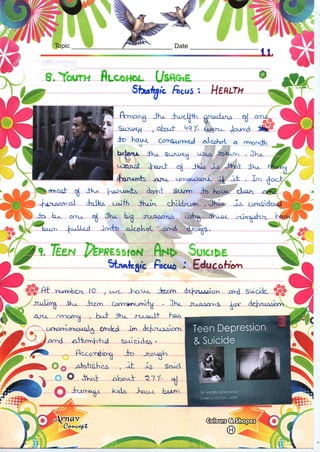 Topic Date
11.
8. YOUTH ALCOHOL USAGE
Strategic Focus : HEALTH
Among the twelfth graders of one
survey , about 49% were found
to have consumed alcohol a month
before the survey was taken . The
worst part of this is that the many
parents are unaware of it . In fact
most of the parents dont seem to have clear and
personal talks with their children . This is considered
to be one of the big reasons why these youngsters have
been pulled into alcohol and drugs.
9. TEEN DEPRESSION AND SUICIDE
Strategic Focus : Education
At number 10 , we have teen depression and suicide
ruling the teen community . The reasons for depression
are many , but the result has
unanimously ended in depression
and attempted suicides.
According to rough
statistics , it is said
that about 27% of
teenage kids have been
Teen Depression
& Suicide
Arnav
Concept
Colours & Shapes
H